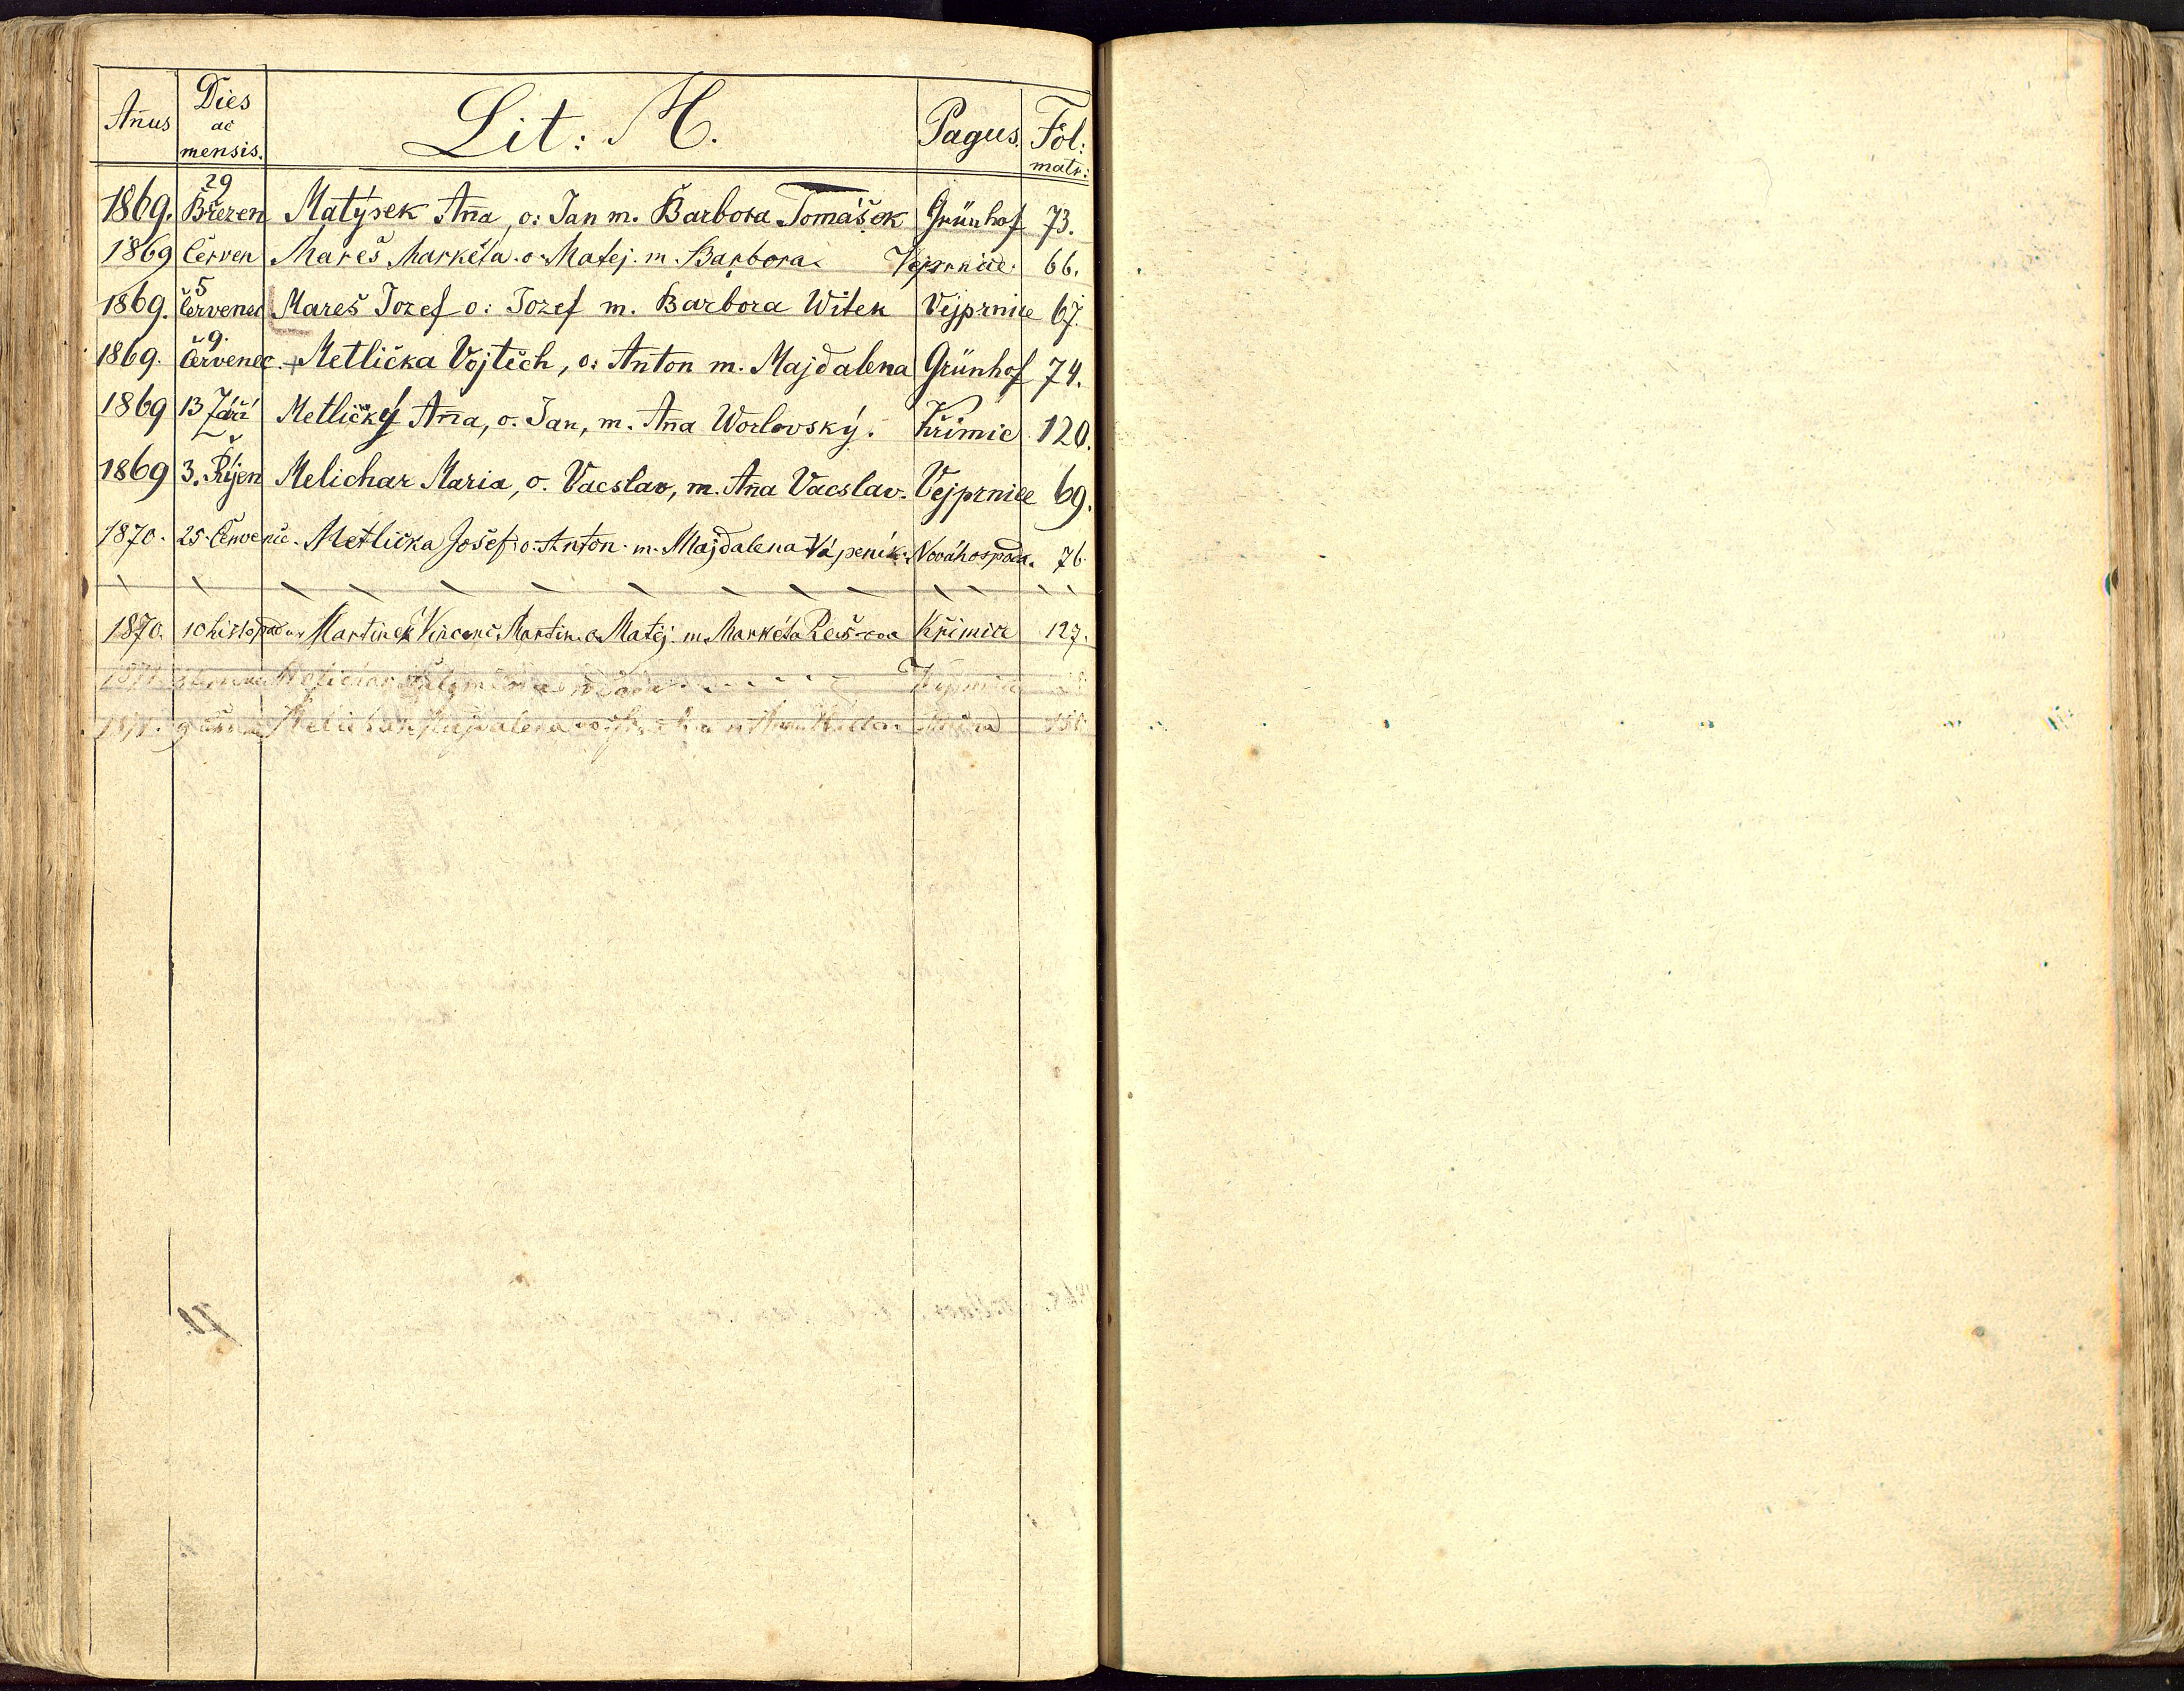 Añus Dies ac mensis. Lit: M. Pagus. Fol: matr:
1869. 29 Březen Matýsek Aña, o: Jan m. Barbora Tomášek Grünhof 73.
1869 Červen Mareš Markéta o. Matej. m. Barbora. Vejprnice. 66.
1869. 5 Červenec Mareš Jozef o: Jozef m. Barbora Witek Vejprnice 67.
1869. 9. Červenec. Metlička Vojtěch, o: Anton m. Majdalena Grünhof 74.
1869 13 Září Metličký Aña, o. Jan, m. Aña Worlovský. Křimic 120.
1869 3. Říjen Melichar Maria, o. Vacslav, m. Aña Vacslav. Vejprnice 69.
1870. 25. Červenec. Metlička Josef o. Anton. m. Majdalena Vápeník. Nováhospoda. 76.
1870. 10 listopadu Martinek Vincenc Martin. o. Matěj m. Markéta Křimice 127.
1871. Melichar
1871. 9 Melichar Majdalena